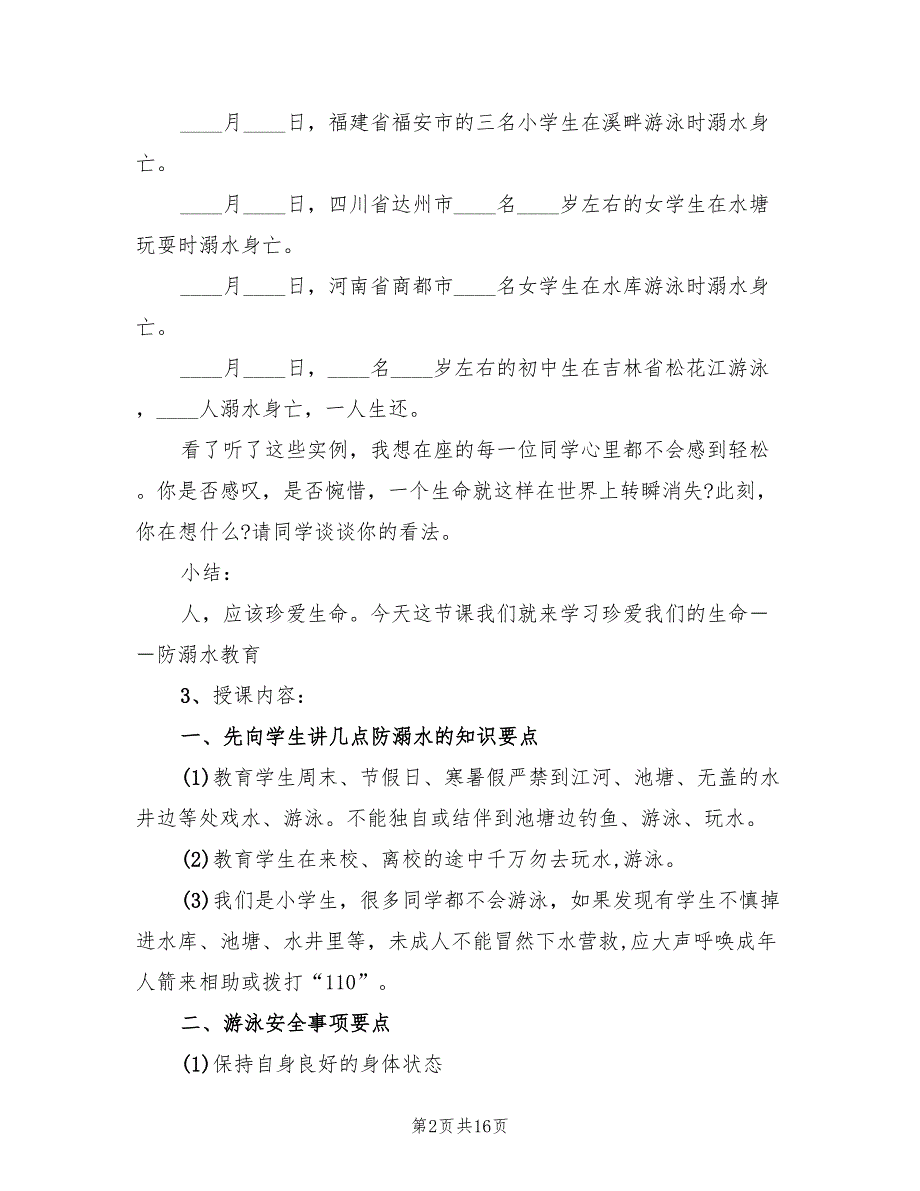 ____月____日，福建省福安市的三名小学生在溪畔游泳时溺水身
亡。
____月____日，四川省达州市____名____岁左右的女学生在水塘
玩耍时溺水身亡。
____月____日，河南省商都市____名女学生在水库游泳时溺水身
亡。
____月____日，____名____岁左右的初中生在吉林省松花江游泳
，____人溺水身亡，一人生还。
看了听了这些实例，我想在座的每一位同学心里都不会感到轻松
。你是否感叹，是否惋惜，一个生命就这样在世界上转瞬消失?此刻，
你在想什么?请同学谈谈你的看法。
小结：
人，应该珍爱生命。今天这节课我们就来学习珍爱我们的生命—
—防溺水教育
3、授课内容：
一、先向学生讲几点防溺水的知识要点
(1)教育学生周末、节假日、寒暑假严禁到江河、池塘、无盖的水
井边等处戏水、游泳。不能独自或结伴到池塘边钓鱼、游泳、玩水。
(2)教育学生在来校、离校的途中千万勿去玩水,游泳。
(3)我们是小学生，很多同学都不会游泳，如果发现有学生不慎掉
进水库、池塘、水井里等，未成人不能冒然下水营救,应大声呼唤成年
人箭来相助或拨打“110”。
二、游泳安全事项要点
(1)保持自身良好的身体状态
第2页共16页